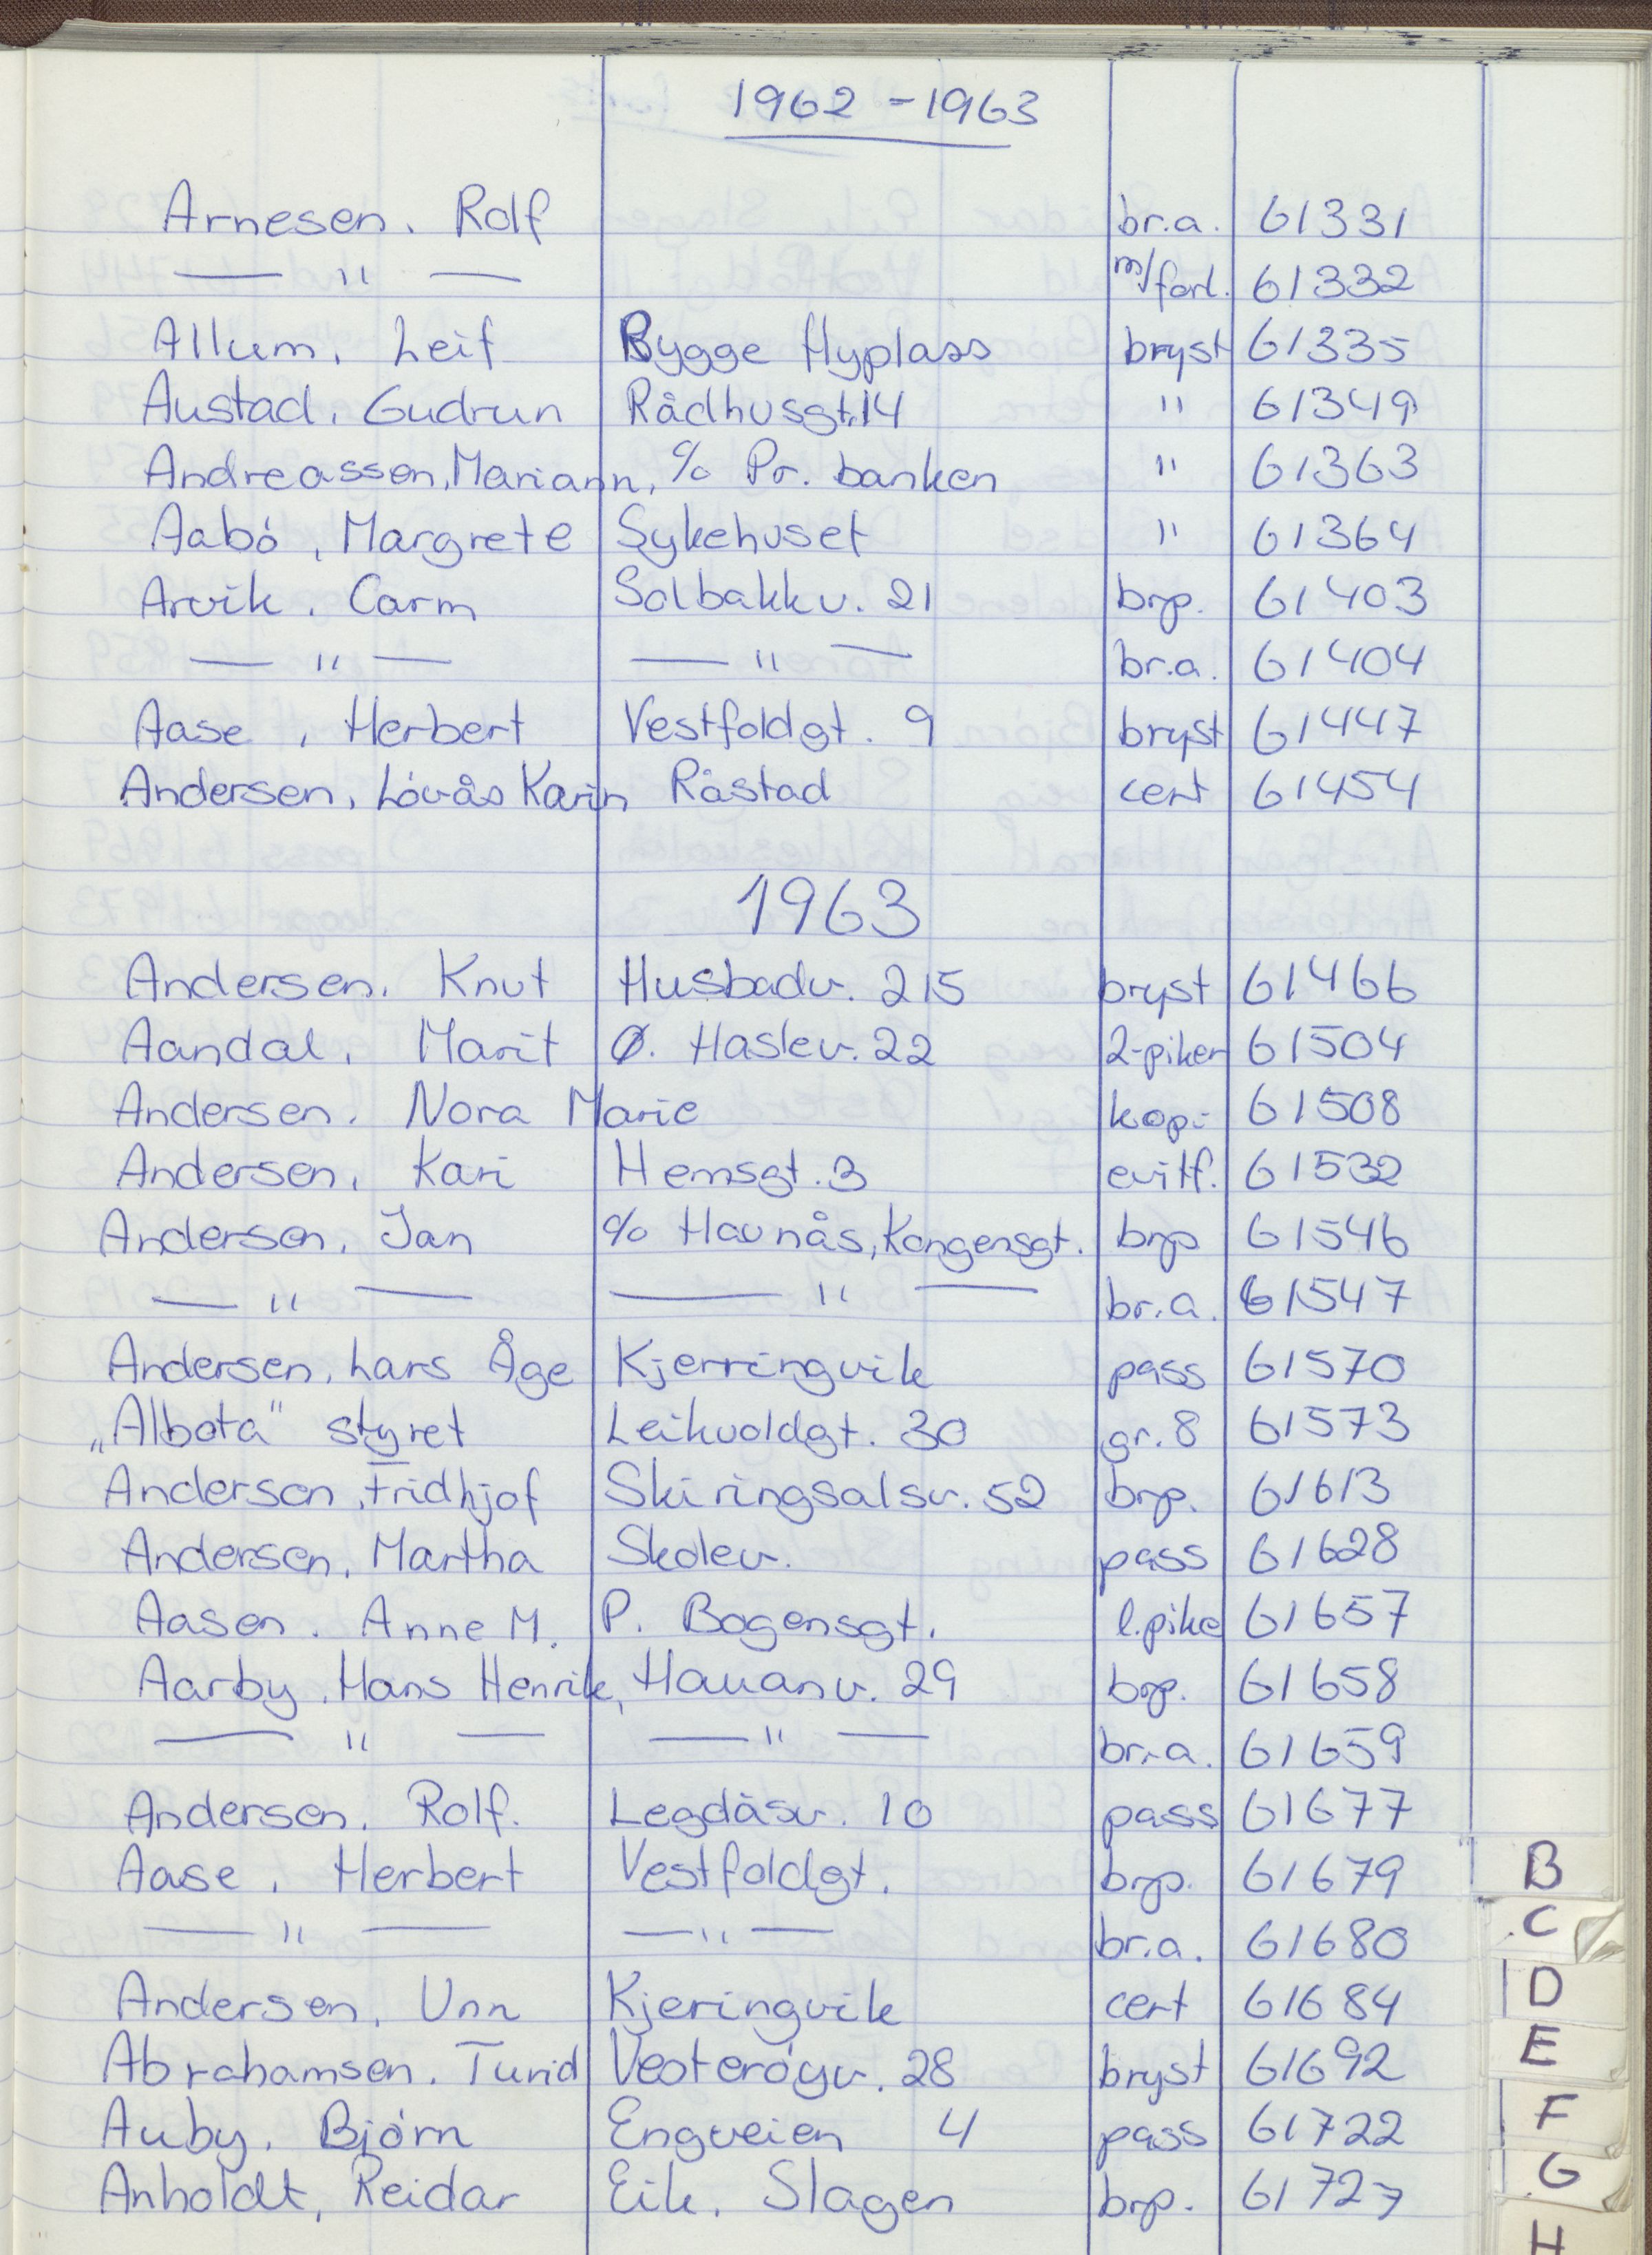 1962 - 1963
Arnesen, Rolf br.a. 61331
— " — m/forl. 61332
Allum, Leif Rygge Flyplass bryst 61335
Austad, Gudrun Rådhusgt. 14 " 61349
Andreassen, Mariann, % Pr. banken " 61363
Aabó, Margrete Sykehuset " 61364
Arvik, Carm Solbakkv. 21 brp. 61403
— " — — " — br.a. 61404
Aase, Herbert Vestfoldgt. 9 bryst 61447
Andersen, Lóvås Karin Råstad cert 61454
1963
Andersen, Knut Husbadv. 215 bryst 61466
Aandal, Marit Ø. Haslev. 22 2-piker 61504
Andersen, Nora Marie kopi 61508
Andersen, Kari Hemsgt. 3 61532
Andersen, Jan % Havnås, Kongensgt. brp 61546
— " — — " — br.a. 61547
Andersen, Lars Åge Kjerringvik pass 61570
„Albota" styret Leikvoldgt. 30 gr. 8 61573
Andersen, Fridhjof Skiringsalsv. 52 brp. 61613
Andersen, Martha Skolev. pass 61628
Aasen, Anne M. P. Bogensgt. l.pike 61657
Aarby, Hans Henrik, Hauanv. 29 brp. 61658
— " — — " — br.a. 61659
Andersen, Rolf. Legdåsv. 10 pass 61677
Aase, Herbert Vestfoldgt. brp. 61679
— " — — " — br.a. 61680
Andersen, Unn Kjeringvik cert 61684
Abrahamsen, Turid Vesterøyv. 28 bryst 61692
Auby, Bjórn Engveien 4 pass 61722
Anholdt, Reidar Eik, Slagen brp. 61727
B
C
D
E
F
G
H